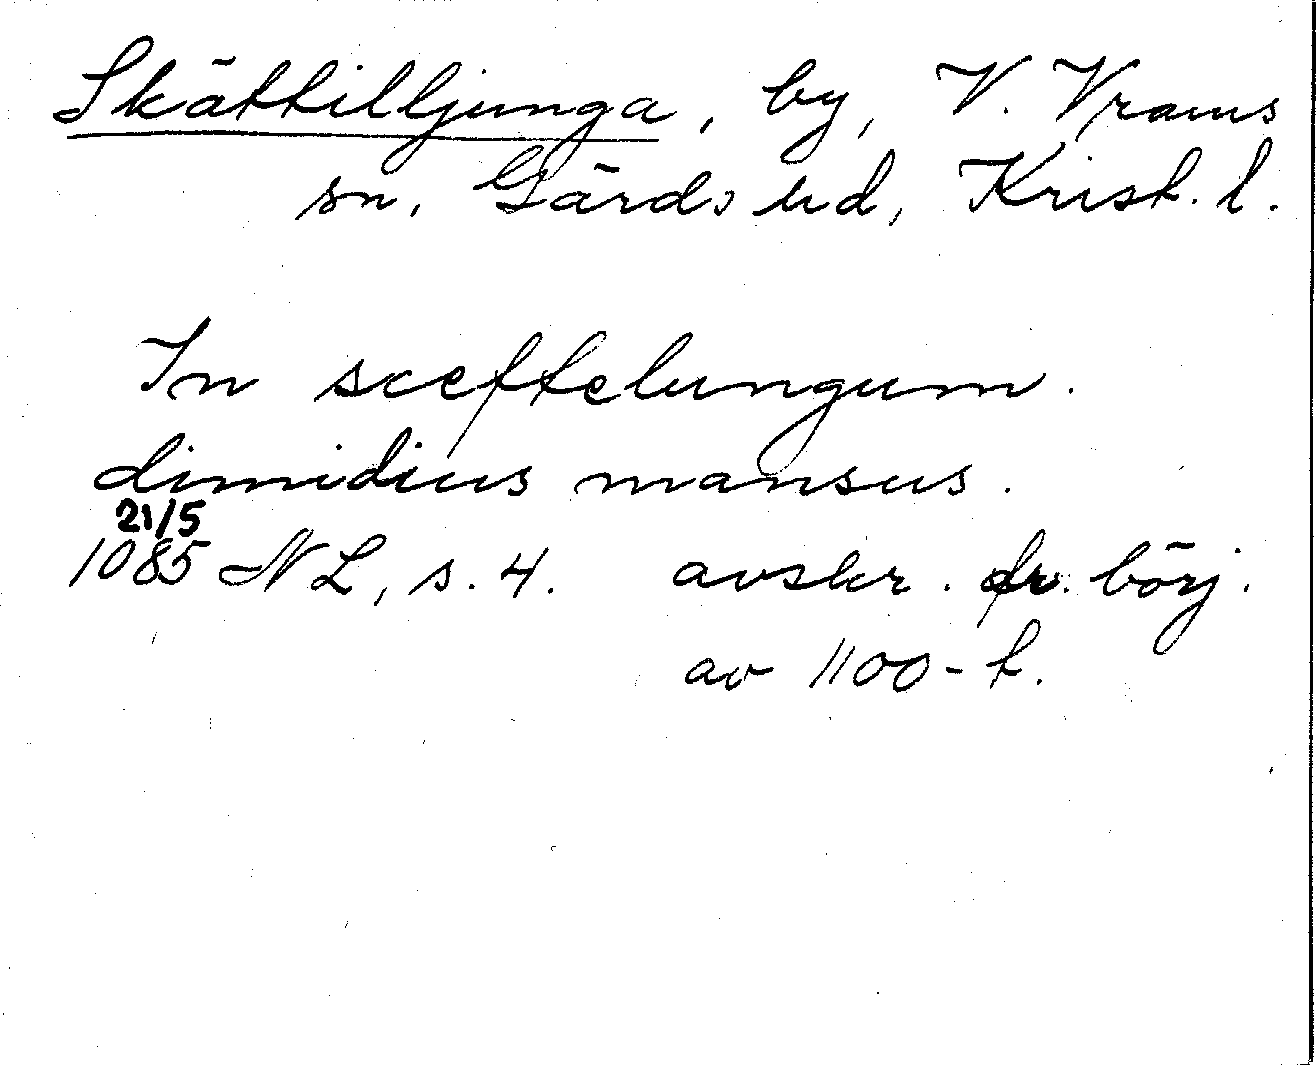 Skättilljunga, by, V. Vrams
sn, Gärds hd, Krist. l.
In sceftelungum.
dimidius mansus.
21/5
1085 NL, s. 4. avskr. fr. börj.
av 1100-t.